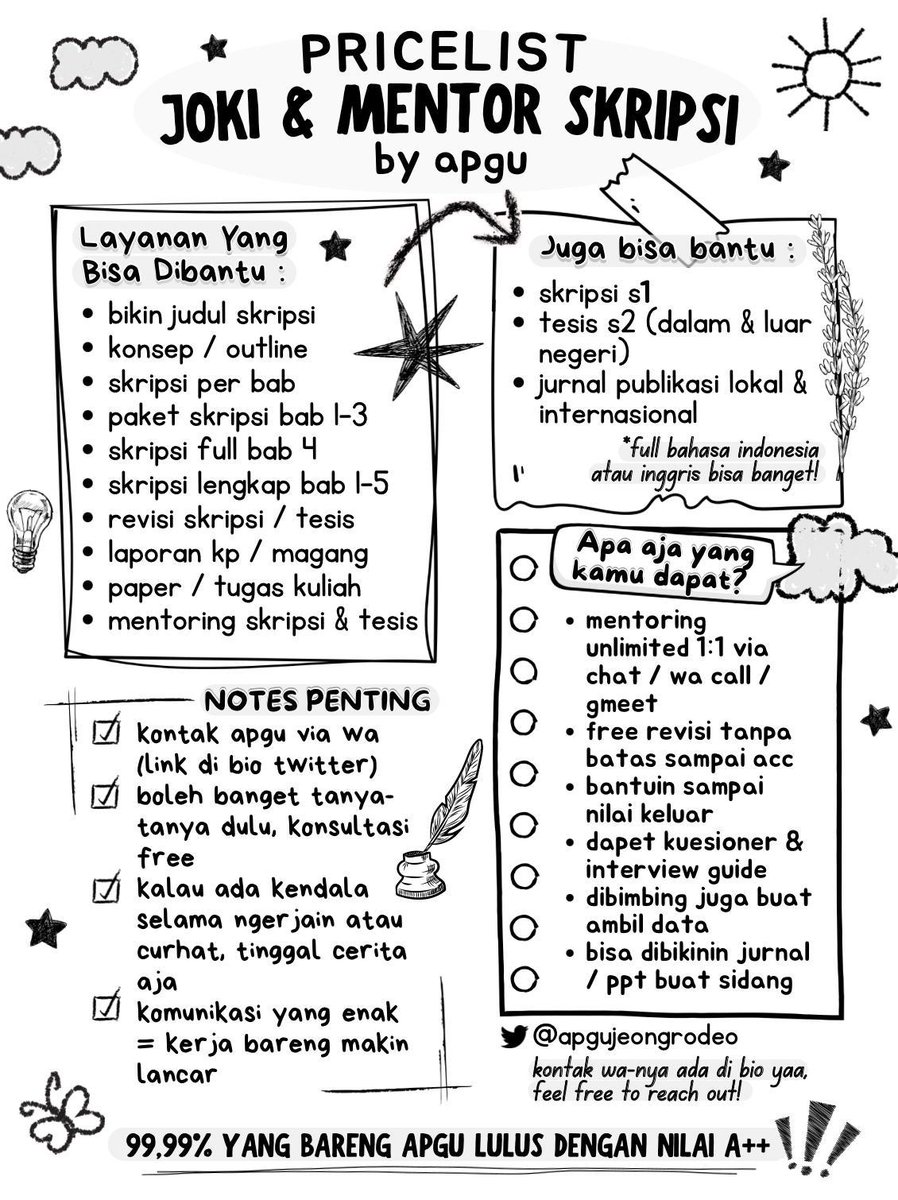 PRICELIST
JOKI & MENTOR SKRIPSI
by apgu
Layanan Yang
Bisa Dibantu :
• bikin judul skripsi
• konsep / outline
• skripsi per bab
• paket skripsi bab 1-3
• skripsi full bab 4
• skripsi lengkap bab 1-5
• revisi skripsi / tesis
• laporan kp / magang
• paper / tugas kuliah
• mentoring skripsi & tesis
Juga bisa bantu :
• skripsi s1
• tesis s2 (dalam & luar
negeri)
• jurnal publikasi lokal &
internasional
*full bahasa indonesia
atau inggris bisa banget!
Apa aja yang
kamu dapat?
• mentoring
unlimited 1:1 via
chat / wa call /
gmeet
• free revisi tanpa
batas sampai acc
• bantuin sampai
nilai keluar
• dapet kuesioner &
interview guide
• dibimbing juga buat
ambil data
• bisa dibikinin jurnal
/ ppt buat sidang
NOTES PENTING
kontak apgu via wa
(link di bio twitter)
boleh banget tanya-
tanya dulu, konsultasi
free
kalau ada kendala
selama ngerjain atau
curhat, tinggal cerita
aja
komunikasi yang enak
= kerja bareng makin
lancar
@apgujeongrodeo
kontak wa-nya ada di bio yaa,
feel free to reach out!
99,99% YANG BARENG APGU LULUS DENGAN NILAI A++